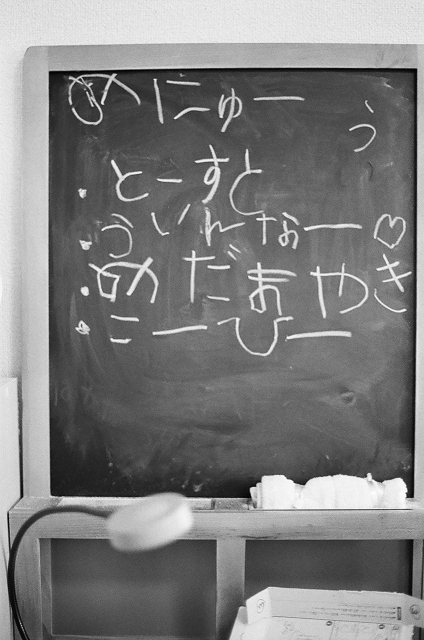 めにゅー う
・とーすと
・ういんなー♡
・めだまやき
・こーひー